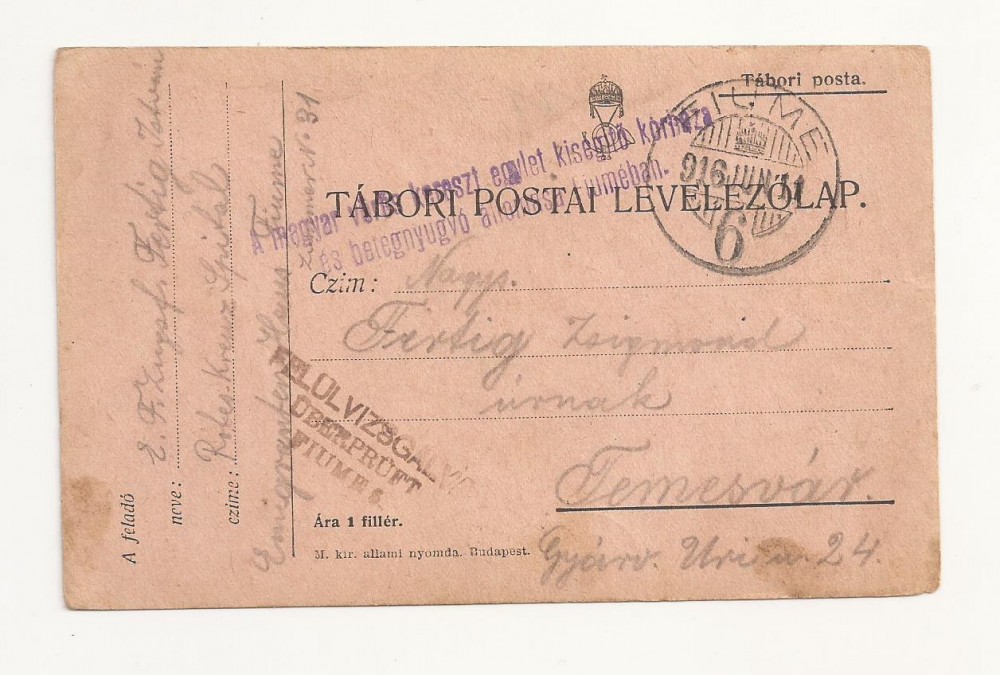 Tábori posta.
FIUME
916 JUN
6
A magyar vörös kereszt egylet kisegitő kórháza
és betegnyugvó állomása Fiuméban.
TÁBORI POSTAI LEVELEZŐLAP.
Czim: Nagys.
Fertig Zsigmond
úrnak
Temesvár.
Gyárv. Uri u. 24.
FELÜLVIZSGÁLVA
ÜBERPRÜFT
FIUME 6
Ára 1 fillér.
M. kir. állami nyomda. Budapest.
A feladó
neve: E. F. Zugsf. Fertig
czime: Rotes Kreuz Spital
Emigranten Haus Fiume
Zimmer No 31